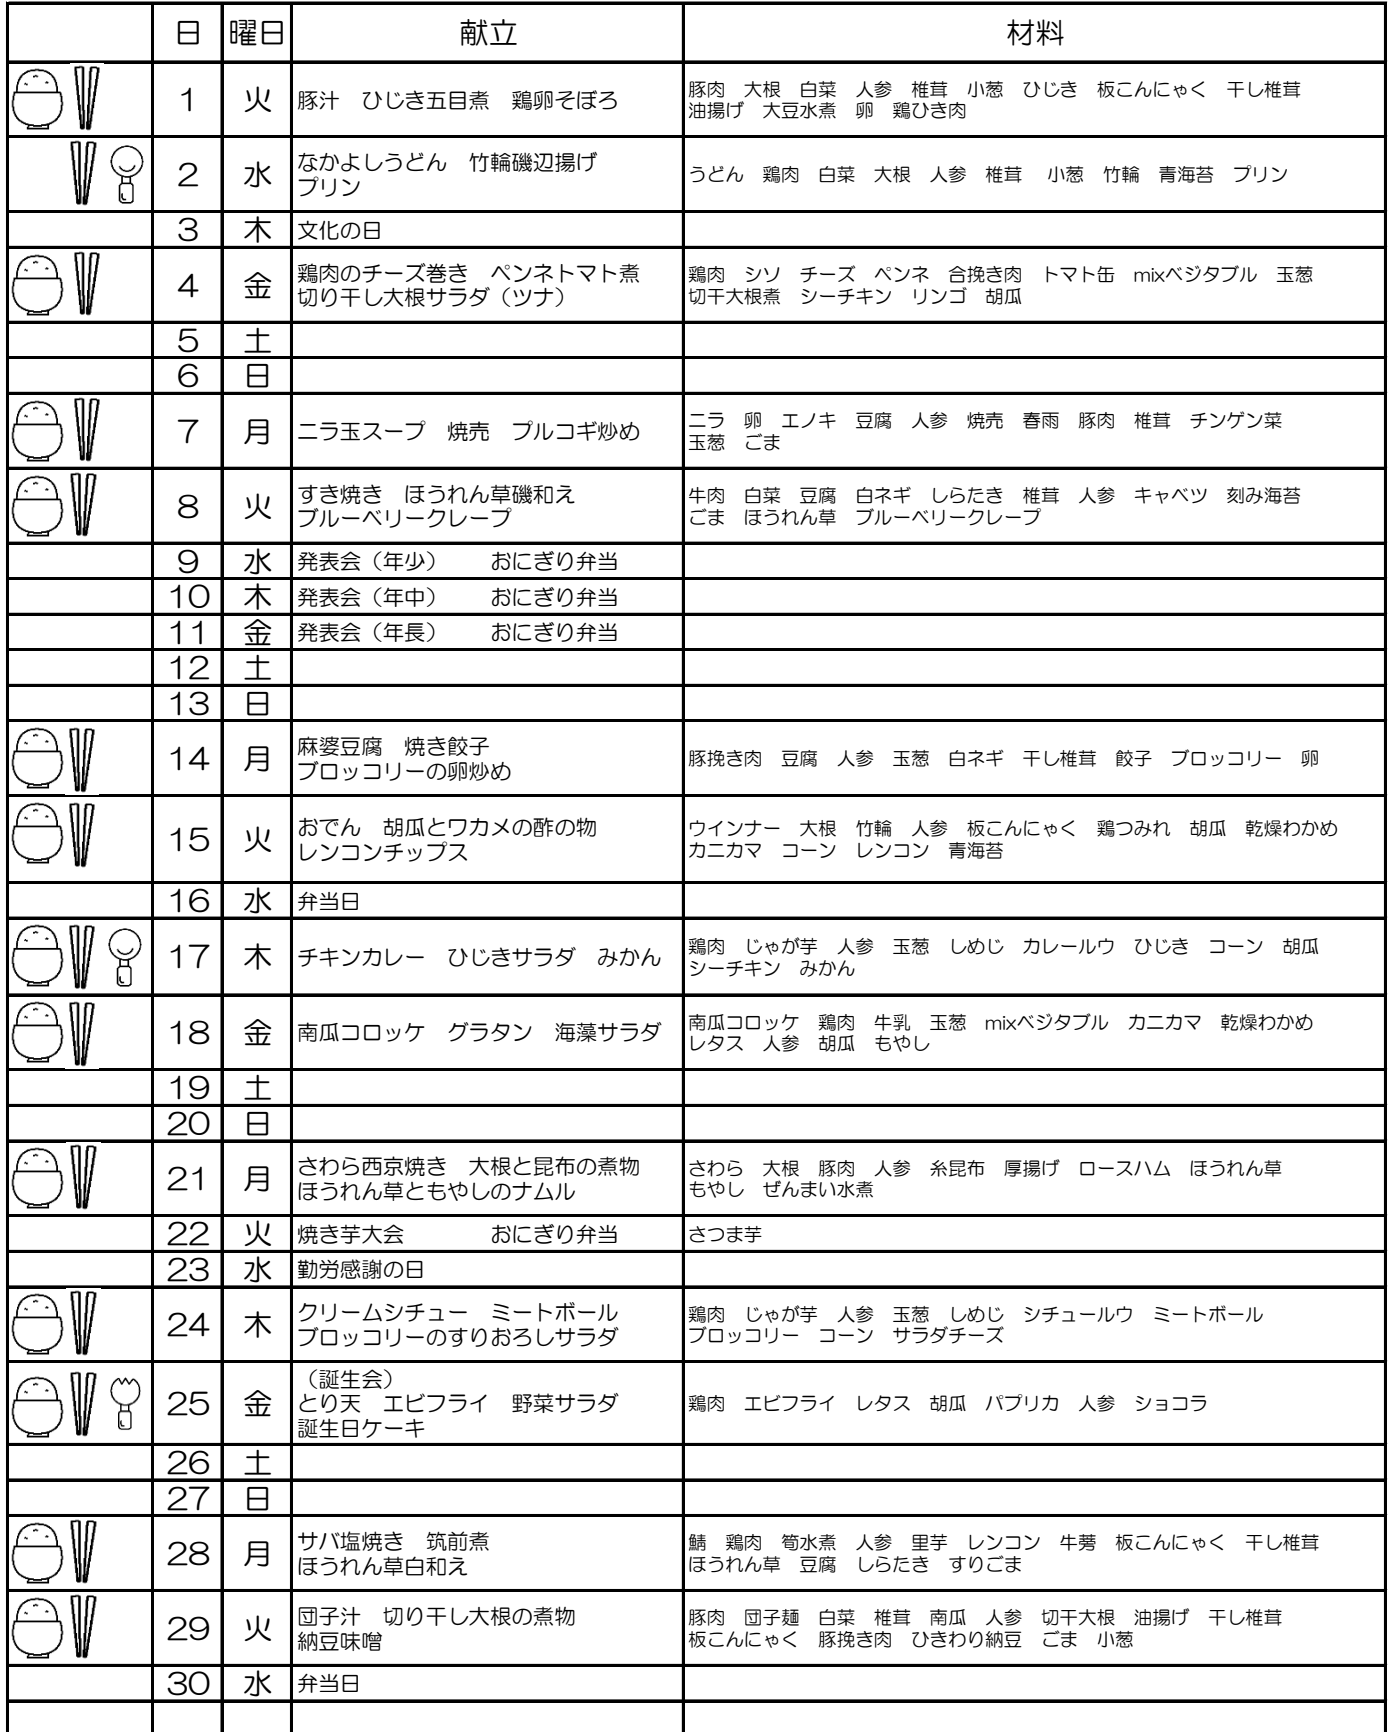 日 曜日 献立 材料
1 火 豚汁 ひじき五目煮 鶏卵そぼろ 豚肉 大根 白菜 人参 椎茸 小葱 ひじき 板こんにゃく 干し椎茸
油揚げ 大豆水煮 卵 鶏ひき肉
2 水 なかよしうどん 竹輪磯辺揚げ
プリン
うどん 鶏肉 白菜 大根 人参 椎茸 小葱 竹輪 青海苔 プリン
3 木 文化の日
4 金 鶏肉のチーズ巻き ペンネトマト煮
切り干し大根サラダ（ツナ）
鶏肉 シソ チーズ ペンネ 合挽き肉 トマト缶 mixベジタブル 玉葱
切干大根煮 シーチキン リンゴ 胡瓜
5 土
6 日
7 月 ニラ玉スープ 焼売 プルコギ炒め
ニラ 卵 エノキ 豆腐 人参 焼売 春雨 豚肉 椎茸 チンゲン菜
玉葱 ごま
8 火 すき焼き ほうれん草磯和え
ブルーベリークレープ
牛肉 白菜 豆腐 白ネギ しらたき 椎茸 人参 キャベツ 刻み海苔
ごま ほうれん草 ブルーベリークレープ
9 水 発表会（年少） おにぎり弁当
10 木 発表会（年中） おにぎり弁当
11 金 発表会（年長） おにぎり弁当
12 土
13 日
14 月 麻婆豆腐 焼き餃子
ブロッコリーの卵炒め
豚挽き肉 豆腐 人参 玉葱 白ネギ 干し椎茸 餃子 ブロッコリー 卵
15 火 おでん 胡瓜とワカメの酢の物
レンコンチップス
ウインナー 大根 竹輪 人参 板こんにゃく 鶏つみれ 胡瓜 乾燥わかめ
カニカマ コーン レンコン 青海苔
16 水 弁当日
17 木 チキンカレー ひじきサラダ みかん
鶏肉 じゃが芋 人参 玉葱 しめじ カレールウ ひじき コーン 胡瓜
シーチキン みかん
18 金 南瓜コロッケ グラタン 海藻サラダ
南瓜コロッケ 鶏肉 牛乳 玉葱 mixベジタブル カニカマ 乾燥わかめ
レタス 人参 胡瓜 もやし
19 土
20 日
21 月 さわら西京焼き 大根と昆布の煮物
ほうれん草ともやしのナムル
さわら 大根 豚肉 人参 糸昆布 厚揚げ ロースハム ほうれん草
もやし ぜんまい水煮
22 火 焼き芋大会 おにぎり弁当 さつま芋
23 水 勤労感謝の日
24 木 クリームシチュー ミートボール
ブロッコリーのすりおろしサラダ
鶏肉 じゃが芋 人参 玉葱 しめじ シチュールウ ミートボール
ブロッコリー コーン サラダチーズ
25 金 （誕生会）
とり天 エビフライ 野菜サラダ
誕生日ケーキ
鶏肉 エビフライ レタス 胡瓜 パプリカ 人参 ショコラ
26 土
27 日
28 月 サバ塩焼き 筑前煮
ほうれん草白和え
鯖 鶏肉 筍水煮 人参 里芋 レンコン 牛蒡 板こんにゃく 干し椎茸
ほうれん草 豆腐 しらたき すりごま
29 火 団子汁 切り干し大根の煮物
納豆味噌
豚肉 団子麺 白菜 椎茸 南瓜 人参 切干大根 油揚げ 干し椎茸
板こんにゃく 豚挽き肉 ひきわり納豆 ごま 小葱
30 水 弁当日